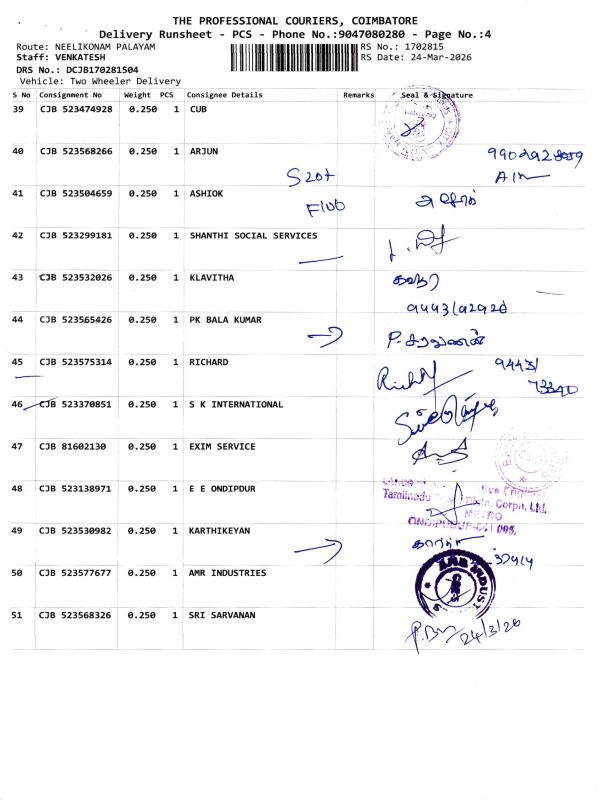 THE PROFESSIONAL COURIERS, COIMBATORE
Delivery Runsheet - PCS - Phone No.:9047080280 - Page No.:4
Route: NEELIKONAM PALAYAM RS No.: 1702815
Staff: VENKATESH RS Date: 24-Mar-2026
DRS No.: DCJB170281504
Vehicle: Two Wheeler Delivery
S No Consignment No Weight PCS Consignee Details Remarks Seal & Signature
39 CJB 523474928 0.250 1 CUB
40 CJB 523568266 0.250 1 ARJUN
41 CJB 523504659 0.250 1 ASHIOK
42 CJB 523299181 0.250 1 SHANTHI SOCIAL SERVICES
43 CJB 523532026 0.250 1 KLAVITHA
44 CJB 523565426 0.250 1 PK BALA KUMAR
45 CJB 523575314 0.250 1 RICHARD
9443/
73340
46 CJB 523370851 0.250 1 S K INTERNATIONAL
47 CJB 81602130 0.250 1 EXIM SERVICE
48 CJB 523138971 0.250 1 E E ONDIPDUR
Tamilnadu Distn. Corpn. Ltd.
METRO
49 CJB 523530982 0.250 1 KARTHIKEYAN
50 CJB 523577677 0.250 1 AMR INDUSTRIES
51 CJB 523568326 0.250 1 SRI SARVANAN
24/3/26